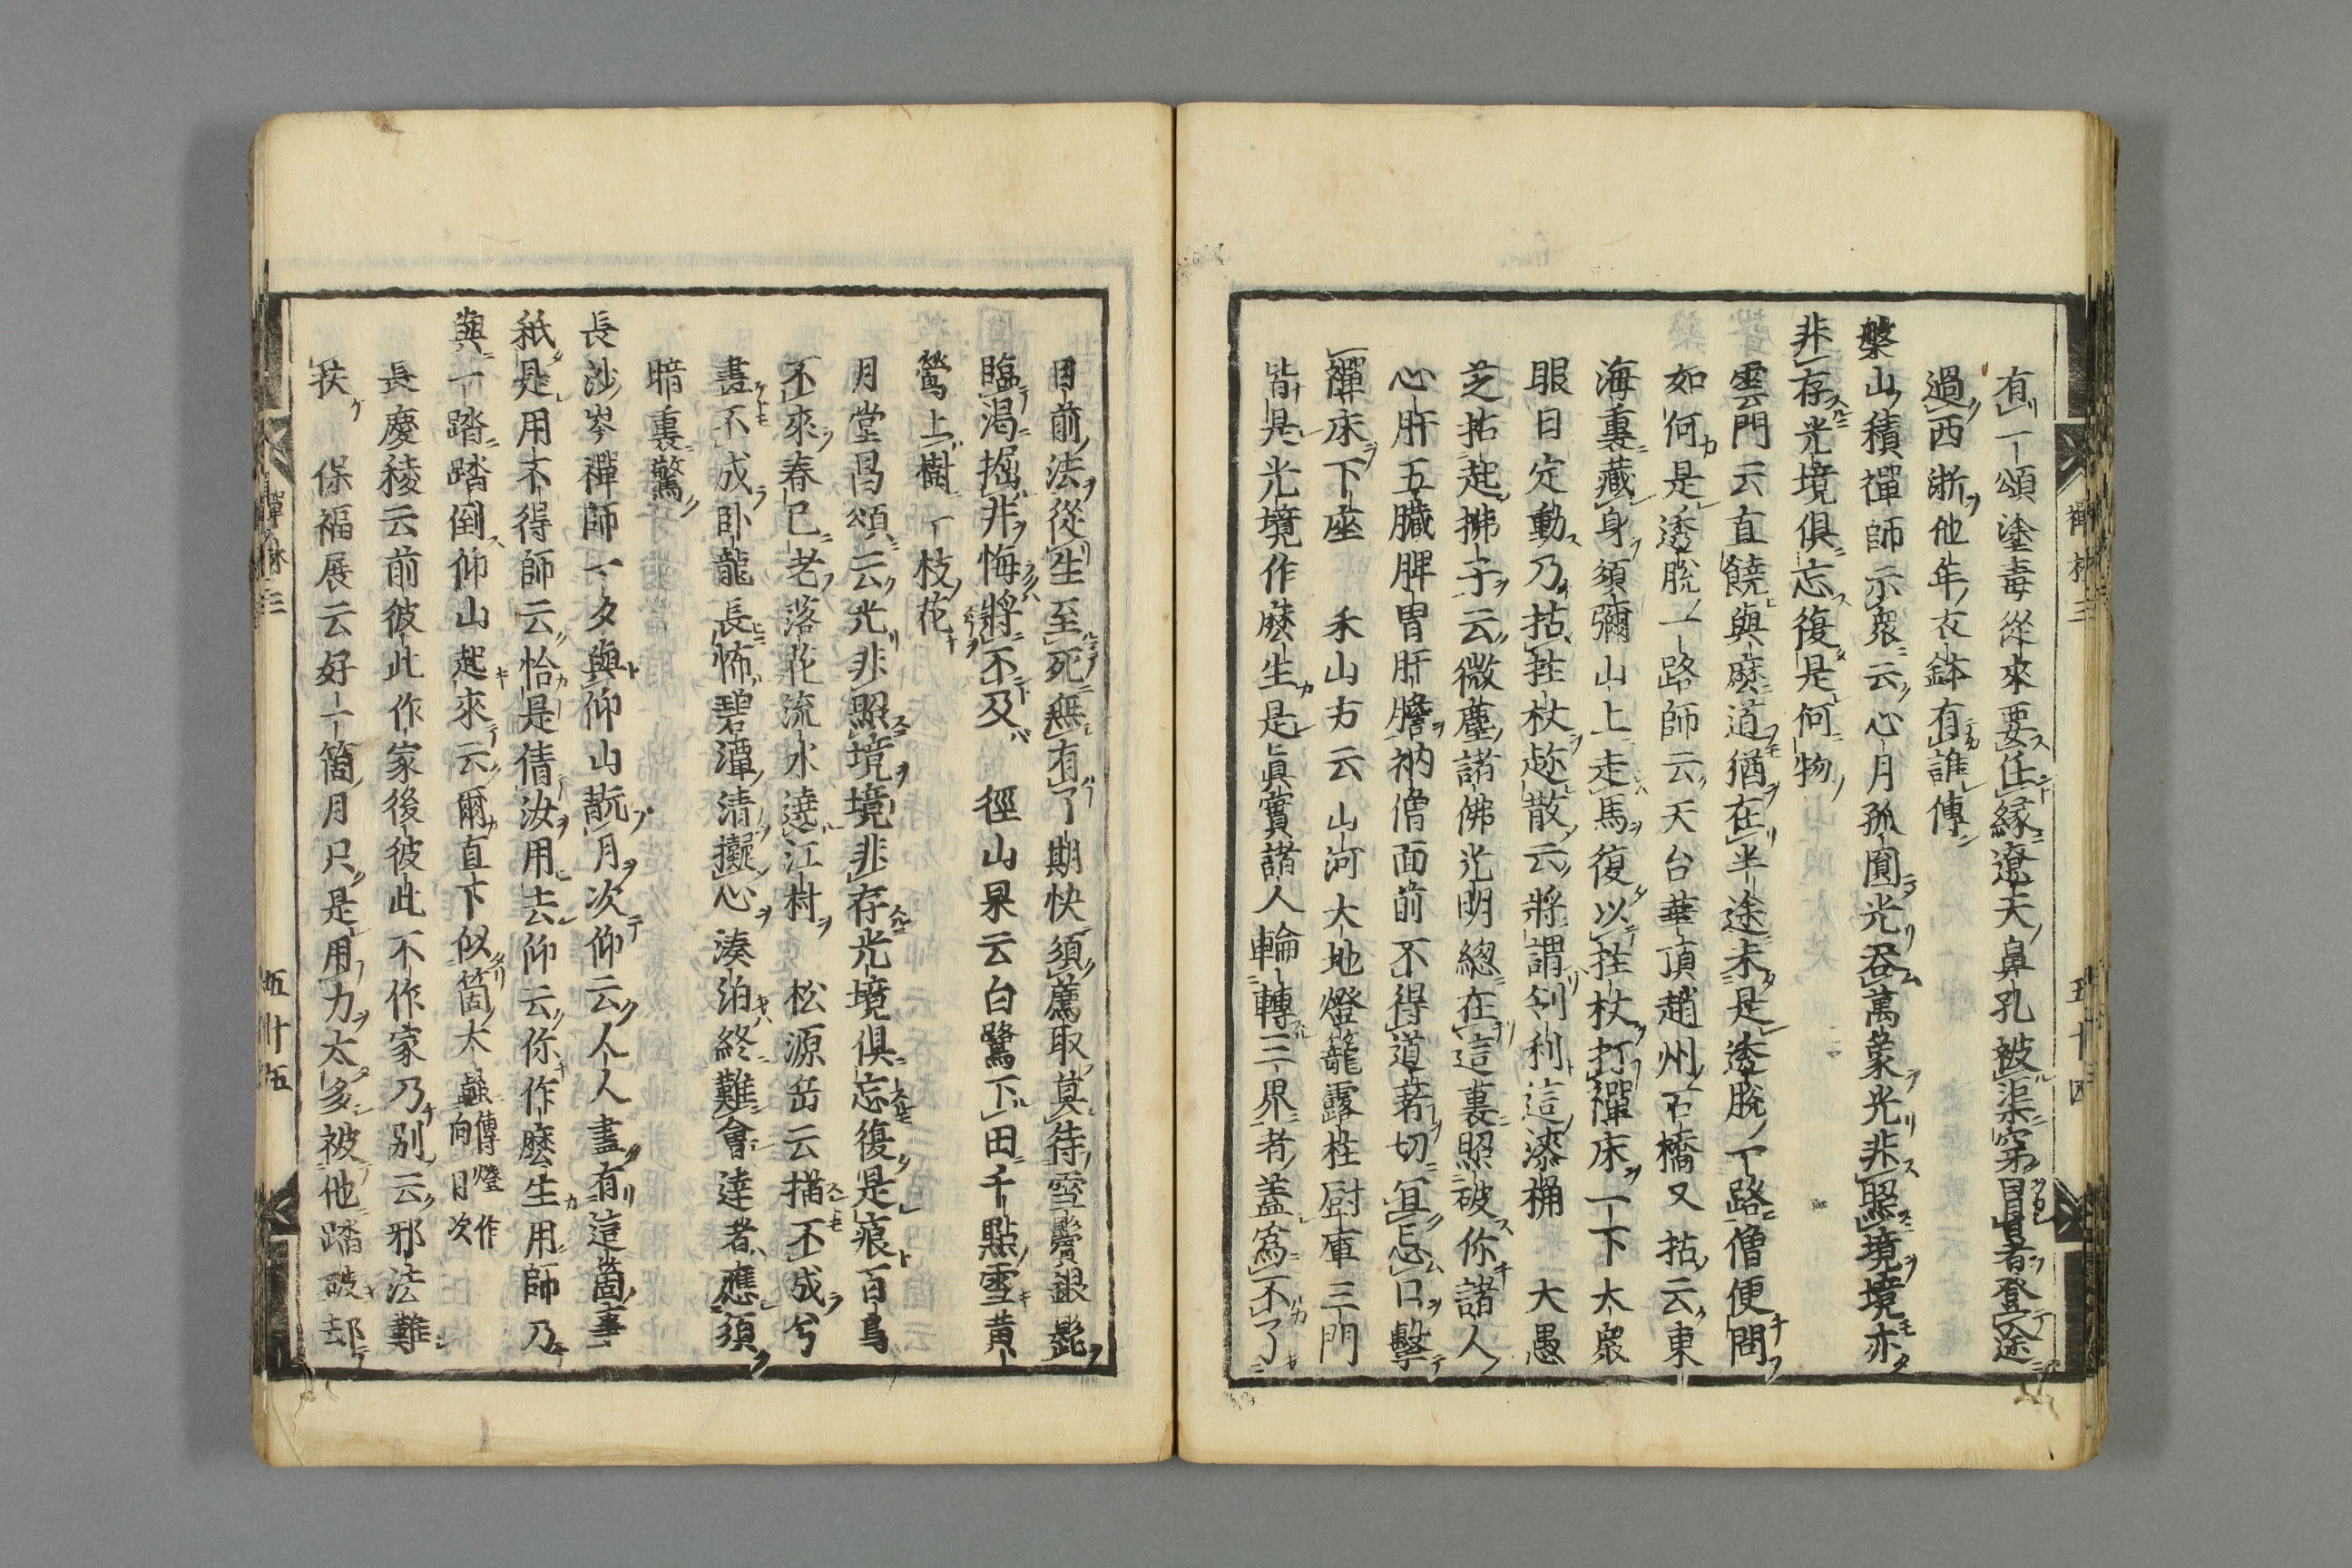 有一頌塗毒從來要任縁遼天鼻孔被渠穿冒者登途
過西浙他年衣鉢有誰傳
槃山積禪師示衆云心月孤圓光呑萬象光非照境境亦
非存光境俱忘復是何物
雲門云直饒與麽道猶在半途未是透脱一路僧便問
如何是透脱一路師云天台華頂趙州石橋又拈云東
海裏藏身須彌山上走馬復以拄杖打禪床一下大衆
眼目定動乃拈拄杖趂散云將謂刢利這漆桶　大愚
芝拈起拂子云微塵諸佛光明緫在這裏照破你諸人
心肝五臓脾胃肝膽衲僧面前不得道著切冝忌口擊
禪床下座　禾山方云山河大地燈籠露柱厨庫三門
皆是光境作麽生是眞實諸人輪轉三界者盖爲不了
目前法從生至死無有了期快須薦取莫待雪鬢銀髭
臨渇掘井悔將不及　徑山杲云白鷺下田千點雪黄
鶯上樹一枝花
月堂昌頌云光非照境境非存光境俱忘復是痕百鳥
不來春已老落花流水遶江村　松源岳云描不成兮
畫不成卧龍長怖碧潭清擬心湊泊終難會達者應須
暗裏驚
長沙岑禪師一夕與仰山翫月次仰云人人盡有這箇事
秖是用不得師云恰是倩汝用去仰云你作麽生用師乃
與一踏踏倒仰山起來云爾直下似箇大蟲傳燈作向日次
長慶稜云前彼此作家後彼此不作家乃别云邪法難
扶　保福展云好一箇月只是用力太多被他踏破却
禪林三
五十四
禪林三
五十五